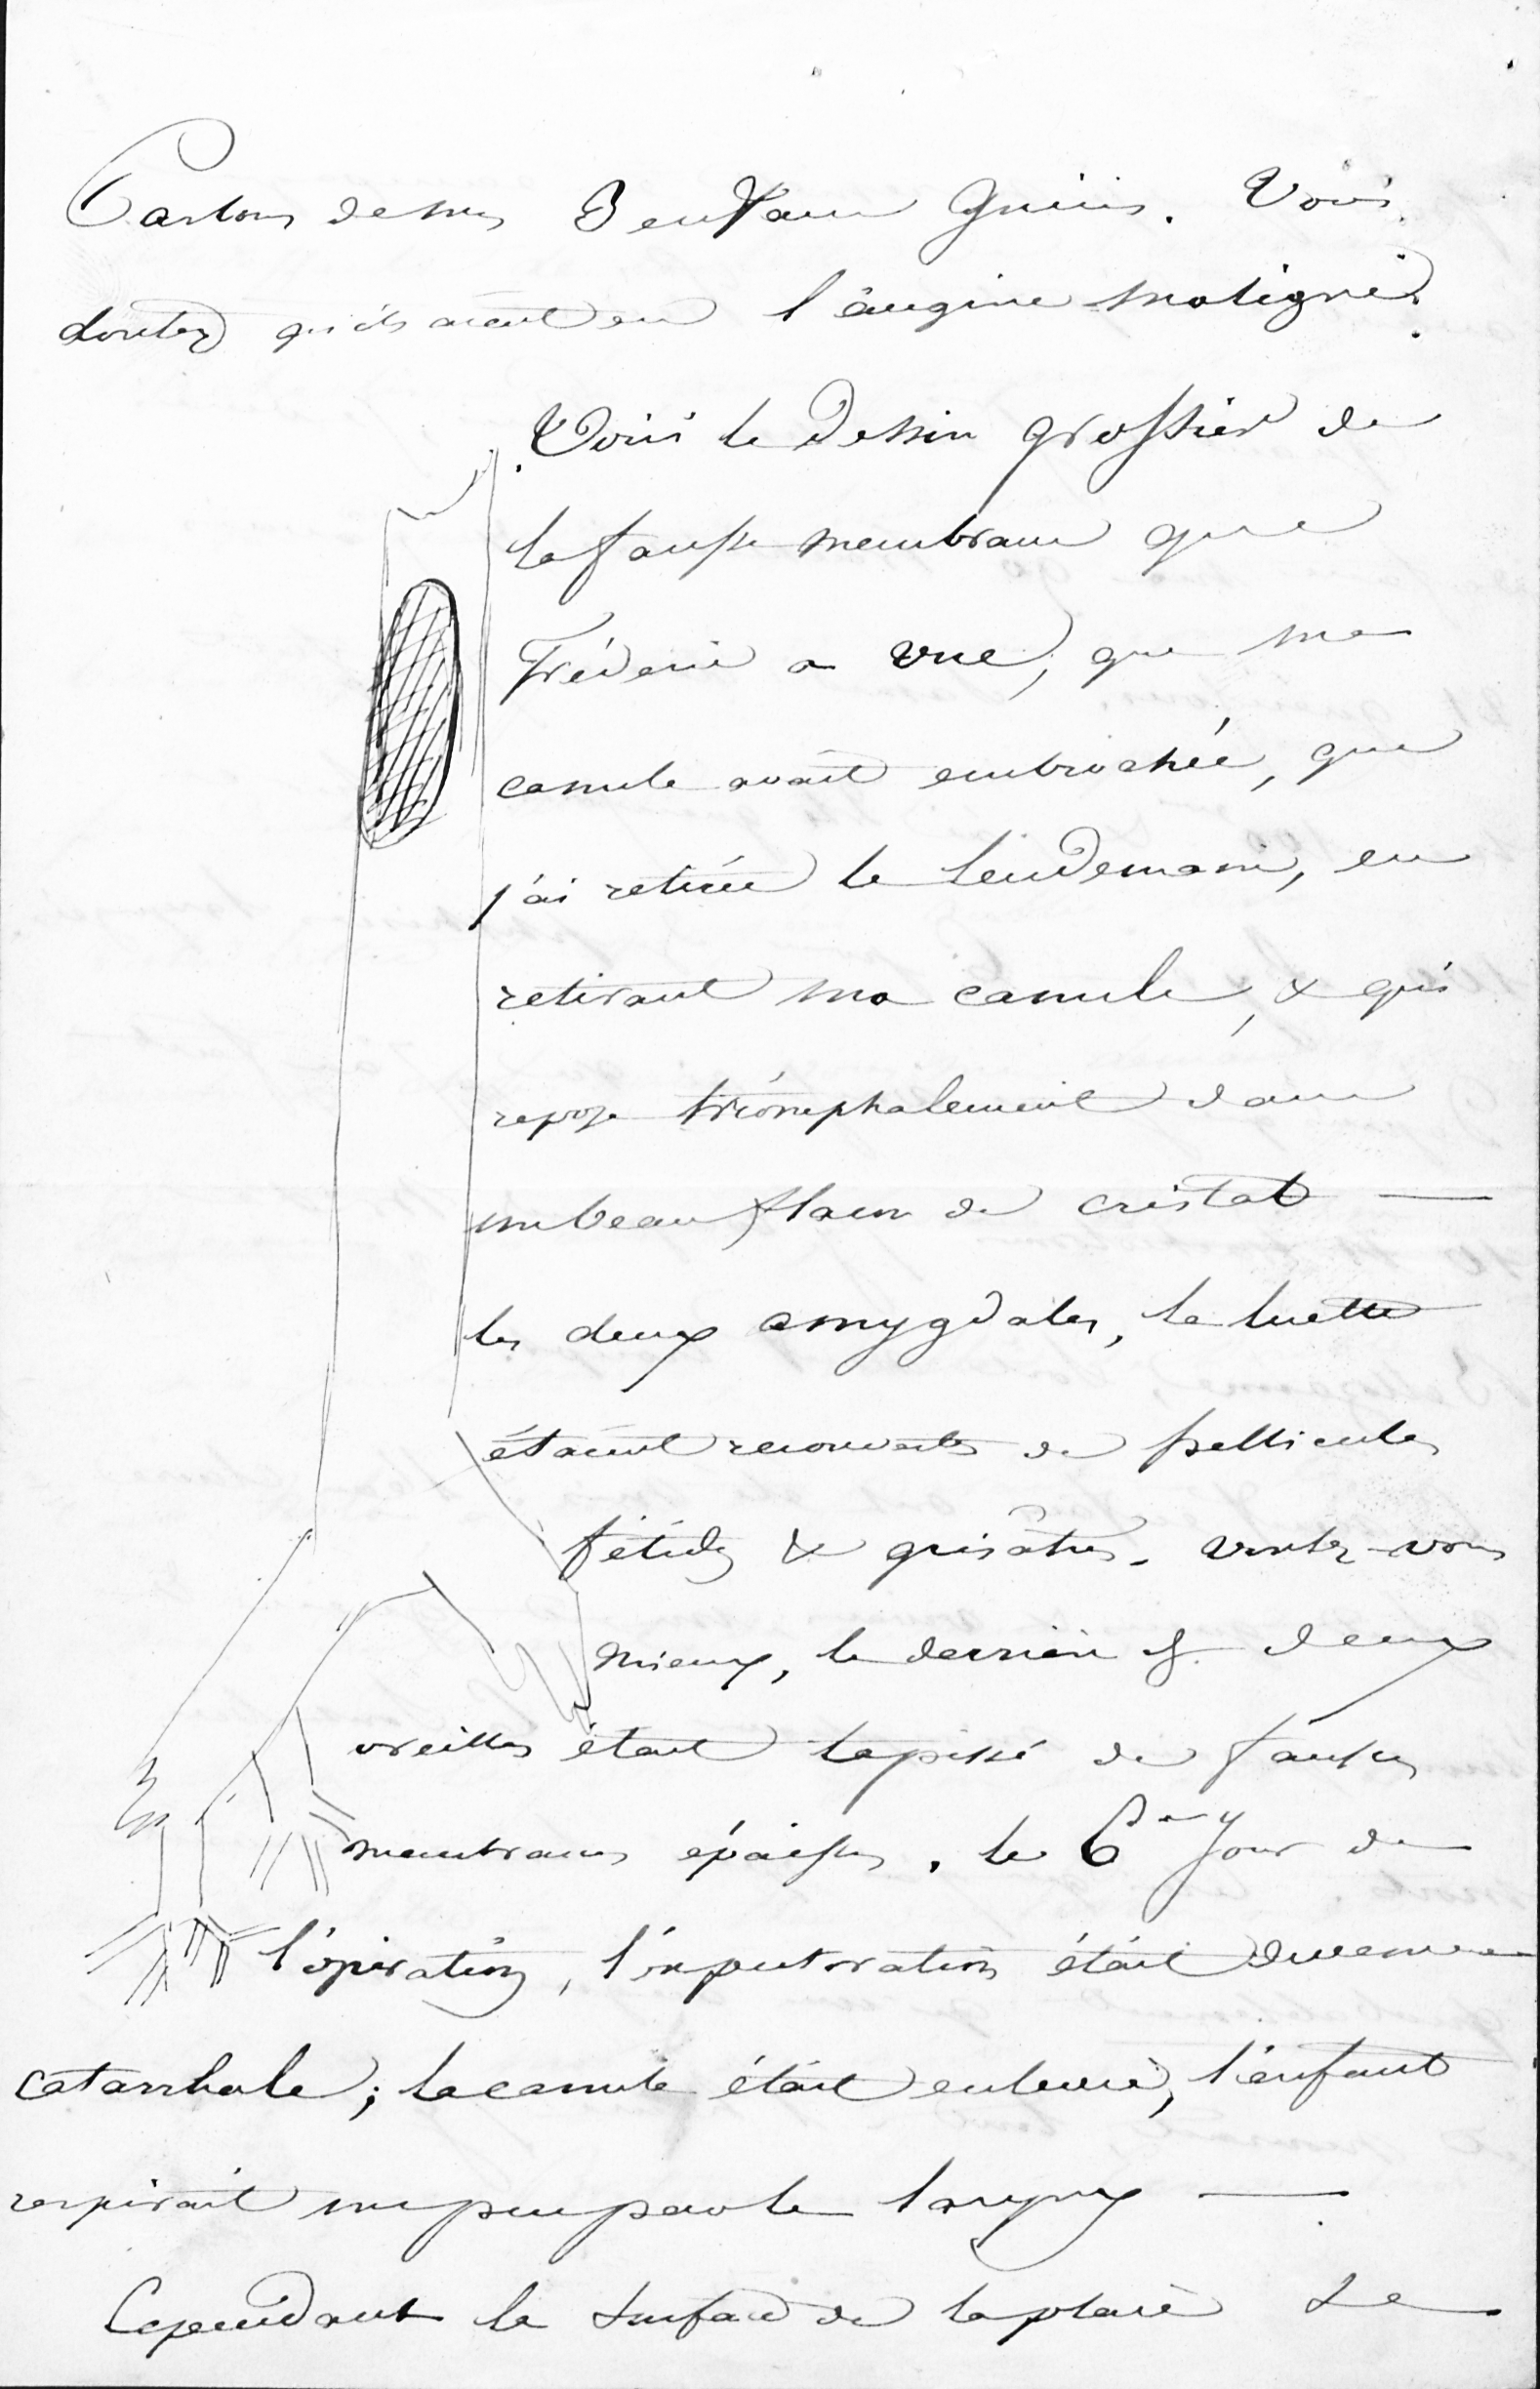 Parlons de mes 3 enfans guéris. Vous
doutez qu'ils aient eu l'angine maligne.
Voici le dessin grossier de
la fausse membrane que
Fréderic a vue, que ma
canule avait embrochée, que
j'ai retirée le lendemain, en
retirant ma canule, & qui
repose triomphalement dans
un beau flacon de cristal —
les deux amygdales, la luette
étaient recouvertes de pellicules
fétides & grisâtres.
mieux, le derrière des deux
oreilles était tapissé de fausses
membranes épaisses. le 6me jour de
l'opération, l'expectoration était devenue
catarrhale; la canule était enlevée, l'enfant
respirait un peu par le larynx —
Cependant la surface de la plaie se